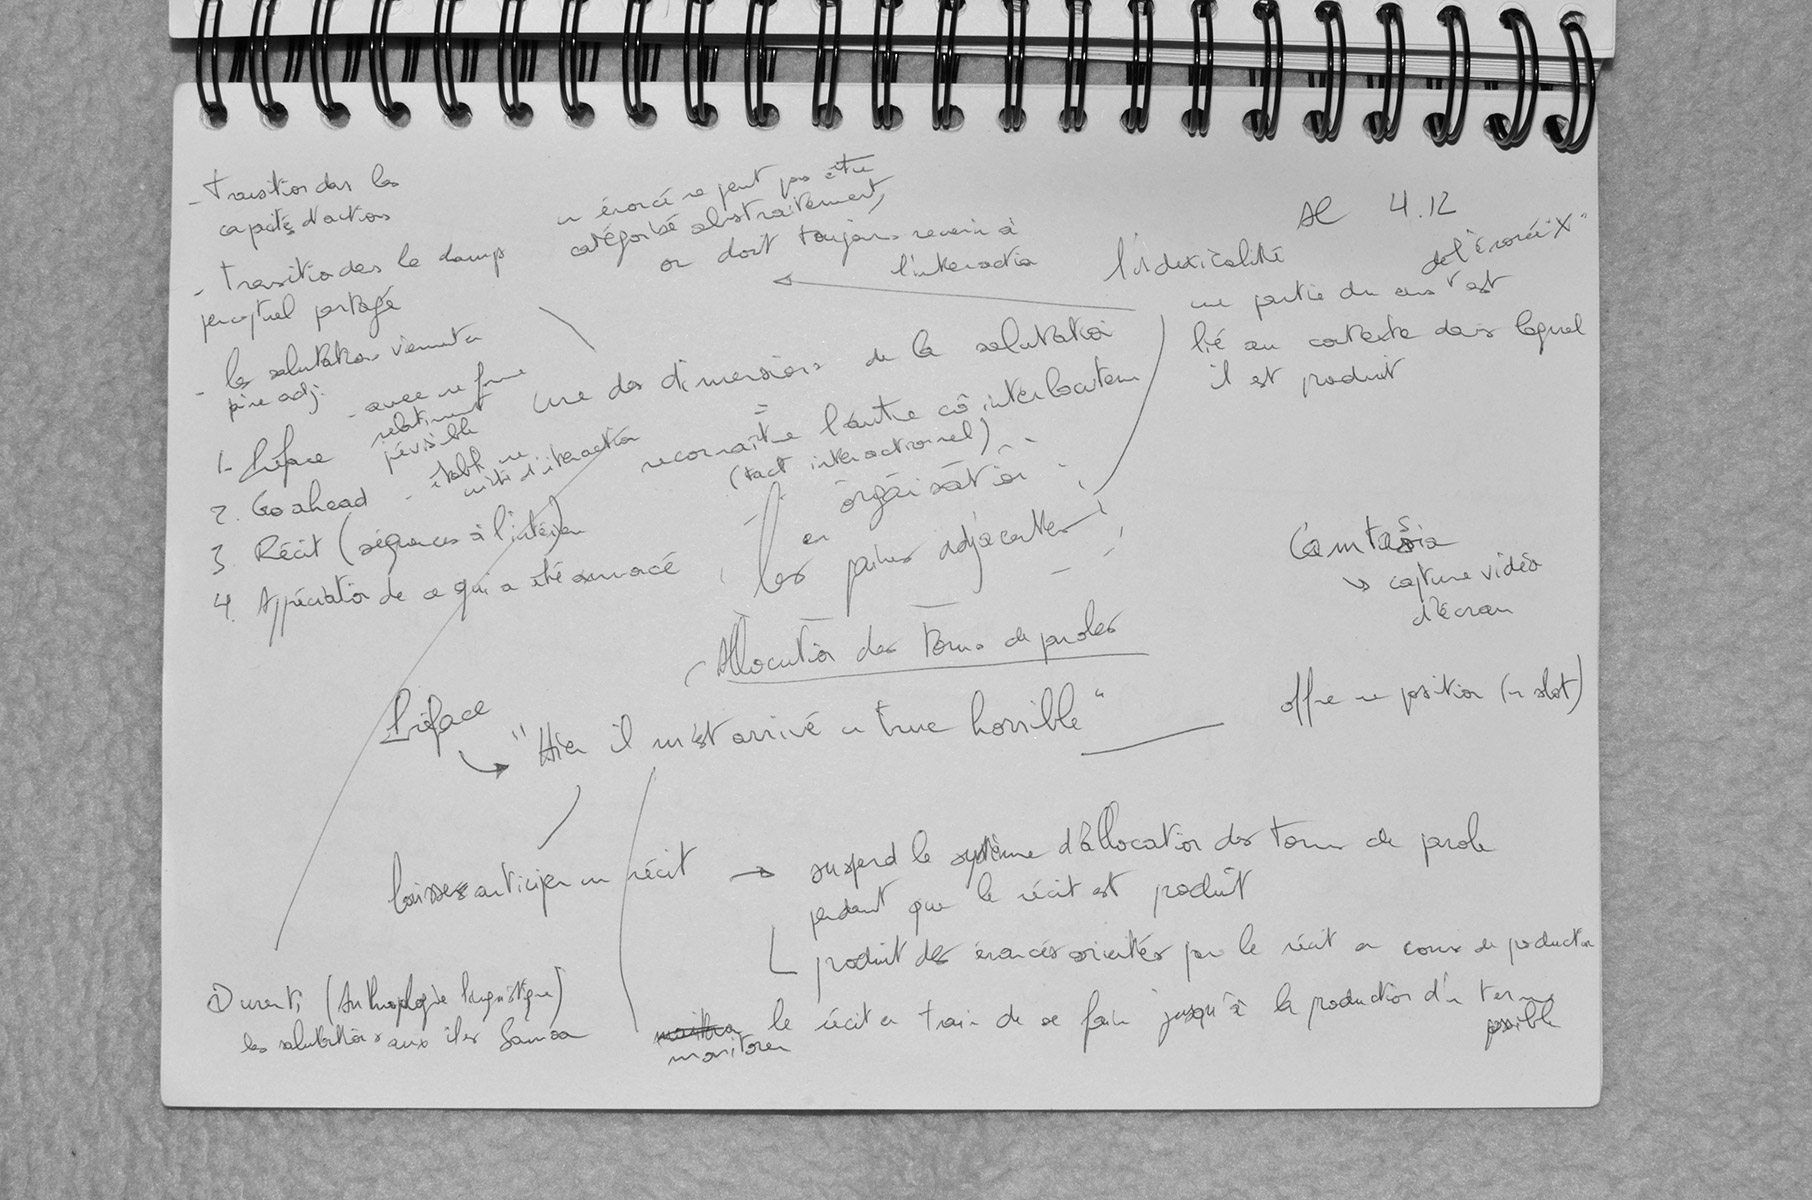 - transition dans les
capacités d'actions
- transition dans le champ
perceptuel partagé
- les salutations viennent en
paire adj.
- avec une forme
relativement
prévisible
- établit une
unité d'interaction
1- Préface
2. Go ahead
3 Récit (séquences à l'intérieur)
4. Appréciation de ce qui a été annoncé
un énoncé ne peut pas être
catégorisé abstraitement,
on doit toujours revenir à
l'interaction
AC 4.12
l'indexicalité
de l'énoncé "X"
une partie du sens est
lié au contexte dans lequel
il est produit
une des dimensions de la salutation
=
reconnaître l'autre co interlocuteur
(tact interactionnel)
organisation
en
les paires adjacentes
Camtasia
↳ capture vidéo
d'écran
Allocution des tours de paroles
Préface
"Hier il m'est arrivé un truc horrible"
offre une position (un slot)
laisser anticiper un récit → suspend le système d'allocation des tours de parole
pendant que le récit est produit
produit des énoncés orientés par le récit en cours de production
monitorer
le récit en train de se faire jusqu'à la production d'un terme
possible
Duranti (Anthropologie linguistique)
les salutations aux îles Samoa